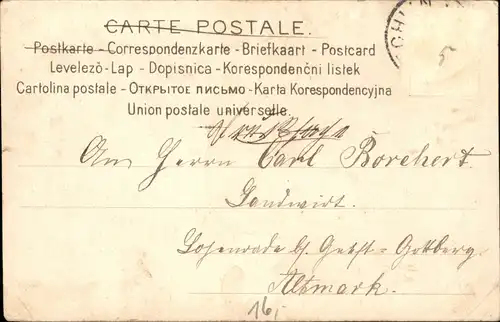 CARTE POSTALE.
Postkarte - Correspondenzkarte - Briefkaart - Postcard
Levelező-Lap - Dopisnica - Korespondenční listek
Cartolina postale - Открытое письмо - Karta Korespondencyjna
Union postale universelle.
5
An Herrn Carl Borchert.
Landwirt.
b/
Altmark.
16,-